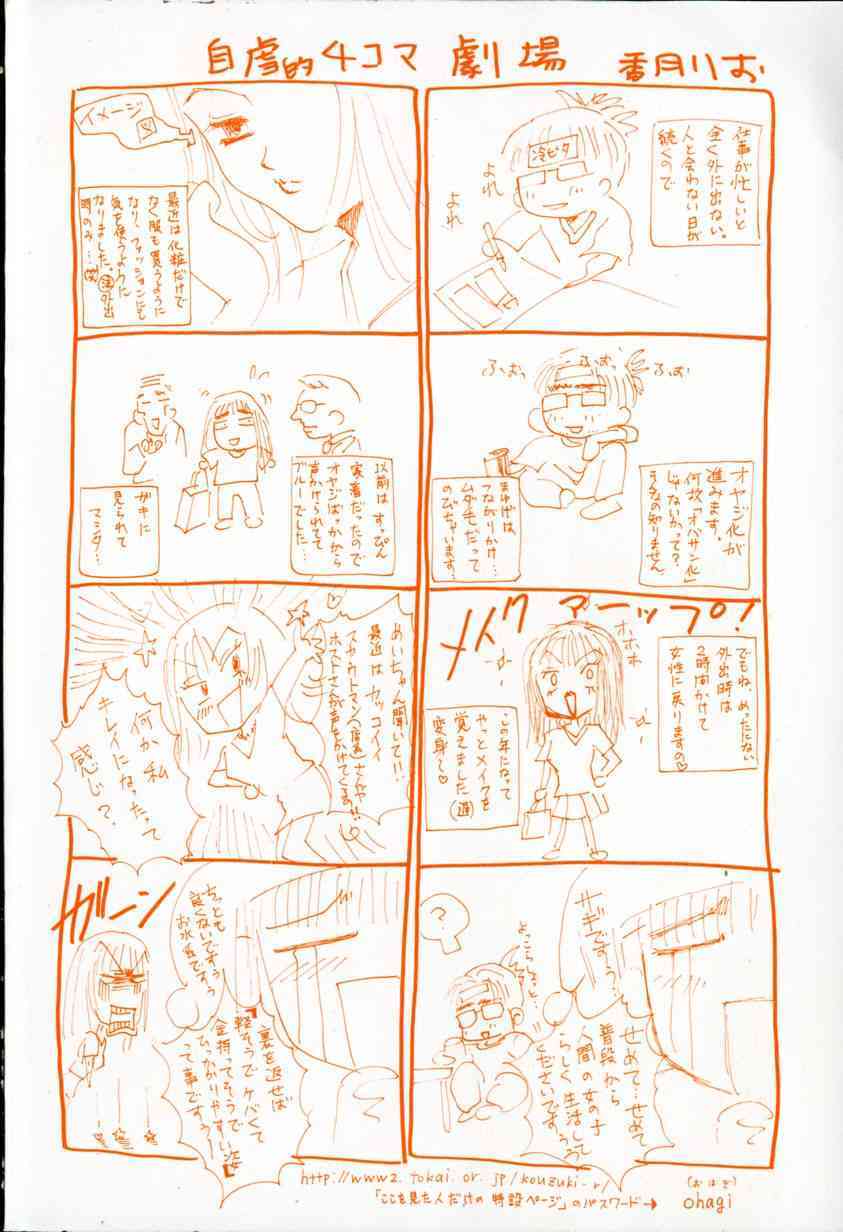 自虐的4コマ 劇場 香月りお
仕事が忙しいと
全く外に出ない。
人と会わない日が
続くので
冷ピタ
よれ
よれ
オヤジ化が
進みます。
何故「オバサン化」
じゃないかって?
ふぉっ
ふぉぉ
まゆげは、
つながりかけ…
ムダ毛だって
のびてます…
メイク アーップ!
でもね、めったにない
外出時は
2時間かけて
女性に戻りますの♡
オホホ
この年になって
やっとメイクを
覚えました(遅)
変身〜♡
サギですぅ…
せめて…せめて
普段から
人間の女の子
らしく生活して
くださいですぅぅ
よっこらしょっと…
?
イメージ
最近は化粧だけで
なく服も買うように
なり、ファッションにも
気を使うように
なりました。(注)外出
時のみ…(笑)
以前は、すっぴん
家着だったので
オヤジばっかから
声かけられてて
ブルーでした…
ガキに
見られて
マシタ…
めいちゃん聞いて!!
最近はカッコイイ
スカウトマン(風俗)さんや
ホストさんが声をかけてくるの!!
何か私
キレイになったって
感じ?
ガーン
ちっとも
良くないですぅぅ
お水系ですぅ
裏を返せば
『軽そうでケバくて
金持ってそうで
ひっかかりやすい姿』
って事ですぅ…
http://www2.tokai.or.jp/kouzuki-r/
「ここを見た人だけの特設ページ」のパスワード→
(おはぎ)
ohagi